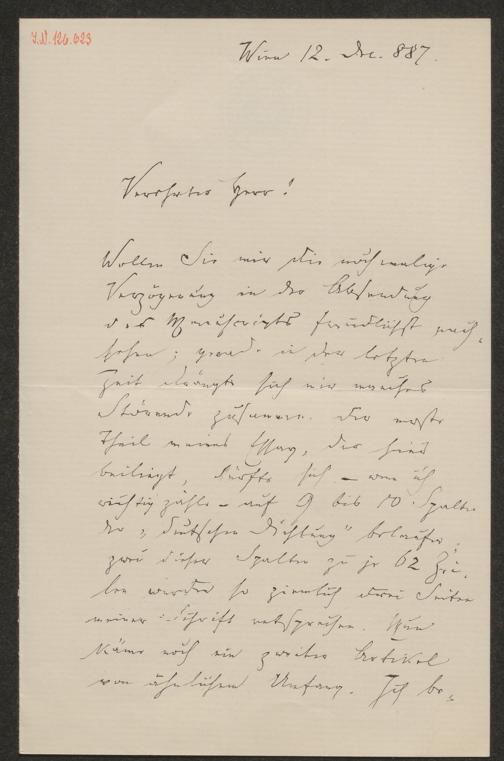 I.N. 126.623
Wien 12. Dec. 887.
Verehrter Herr!
Wollen Sie mir die nochmalige
Verzögerung in der Absendung
des Manuscripts freundlichst nach-
sehen; gerade in der letzten
Zeit drängte sich mir manches
Störende zusammen. Der erste
Theil meines Essay, der hier
beiliegt, dürfte sich – wenn ich
richtig zähle – auf 9 bis 10 Spalten
der „Deutschen Dichtung" belaufen;
zwei dieser Spalten zu je 62 Zei-
len werden so ziemlich drei Seiten
meiner Schrift entsprechen. Nun
käme noch ein zweiter Artikel
von ähnlichem Umfang. Ich be-